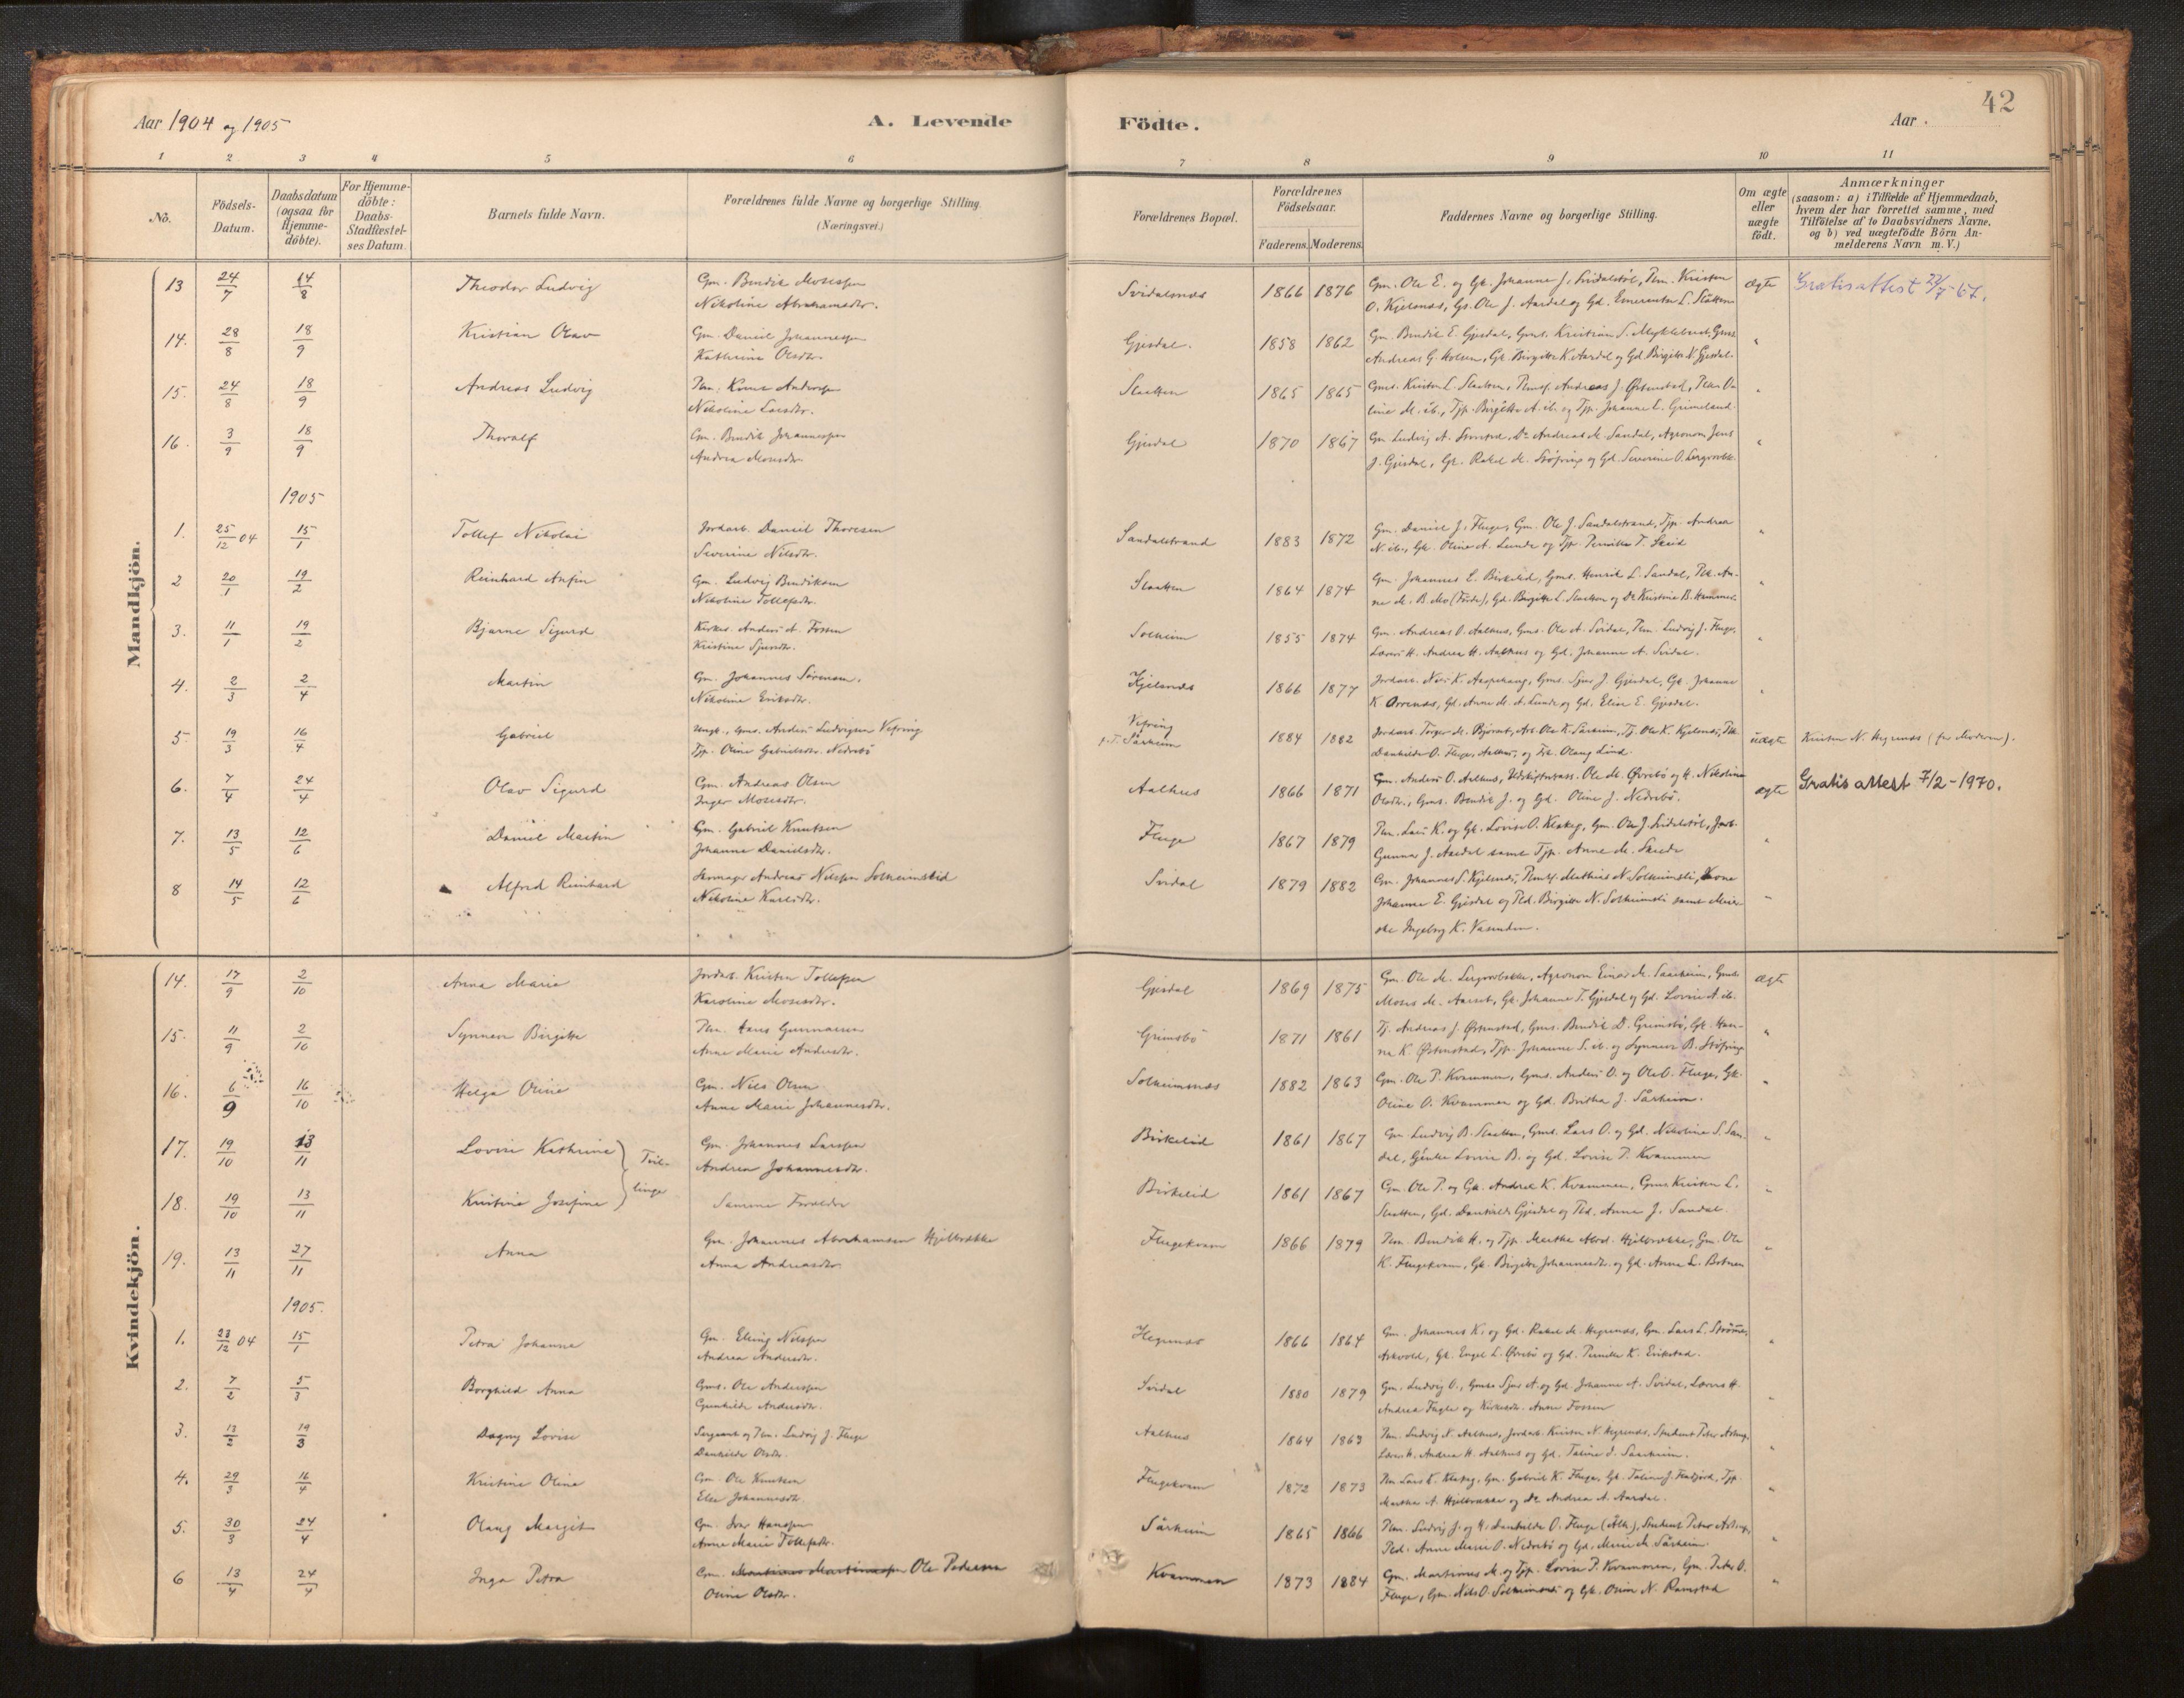 42
Aar 1904 og 1905
A. Levende Födte.
Aar
1 2 3 4 5 6 7 8 9 10 11
No.
Födsels-Datum.
Daabsdatum (ogsaa for Hjemme-döbte).
For Hjemme-döbte: Daabs-Stadfæstel-ses Datum.
Barnets fulde Navn.
Forældrenes fulde Navne og borgerlige Stilling. (Næringsvei.)
Forældrenes Bopæl.
Forældrenes Födselsaar.
Faderens. Moderens.
Faddernes Navne og borgerlige Stilling.
Om ægte eller uægte födt.
Anmærkninger
(saasom: a) i Tilfælde af Hjemmedaab, hvem der har forrettet samme, med Tilföielse af to Daabsvidners Navne, og b) ved uægtefödte Börn An-melderens Navn m. V.)
Mandkjön.
13 24/7 14/8 Theodor Ludvig Gm. Bendik Mosessen Svidalsnæs 1866 1876 Gm. Ole E. og Gk. Johanne J. Svidalstøl, Pm. Kristen ægte Gratisattest 22/7-67.
Nikoline Abrahamsdtr. O. Kjelsnæs, Gs. Ole J. Aardal og Gd. Emerentse L. Slatten
14. 28/8 18/9 Kristian Olav Gm. Daniel Johannessen Gjesdal. 1858 1862 Gm. Bendik E. Gjesdal, Gms. Kristian S. Myklebust, Gms. "
Kathrine Olsdtr. Andreas G. Holsen, Gk. Birgitte K. Aardal og Gd. Birgitte N. Gjesdal.
15. 24/8 18/9 Andreas Ludvig Pm. Knut Anderssen Slaatten 1865 1865 Gms. Kristen L. Slaatten, Andreas J. Østenstad, "
Nikoline Larsdtr. line M. ib., Tjp. Birgitte A. ib. og Tjp. Johanne L. Grimeland.
16. 3/9 18/9 Thoralf Gm. Bendik Johannessen Gjesdal 1870 1867 Gm. Ludvig A. Do Andreas M. Sandal, Agronom Jens "
Andrea Mosesdtr. J. Gjesdal, Gk. Rakel M. Støfring og Gd. Severine O.
1905
1. 25/12 04 15/1 Tollef Nikolai Jordarb. Daniel Thoresen Sandalstrand 1883 1872 Gm. Daniel J. Fluge, Gm. Ole J. Sandalstrand, Tjp. Andrea "
Severine Nilsdtr. N. ib., Gk. Oline A. Lunde og Tjp. Pernille T. Skeid
2 20/1 19/2 Reinhard Anfin Gm. Ludvig Bendiksen Slaatten 1864 1874 Gm. Johannes L. Birkelid, Gms. Henrik L. Sandal, Pk. An- "
Nikoline Tollefsdtr. ne M. B. Mo (Førde), Gd. Birgitte L. Slaatten og Do Kristine B. Hammer.
3. 11/1 19/2 Bjarne Sigurd Kirkes. Anders A. Fossen Solheim 1855 1874 Gm. Andreas O. Aalhus, Gms. Ole A. Svidal, Pm. Ludvig J. Fluge, "
Kristine Sjursdtr. Lærers H. Andrea H. Aalhus og Gd. Johanne A. Svidal.
4. 2/3 2/4 Martin Gm. Johannes Sörensen. Kjelsnæs 1866 1877 Jordarb. Nils K. Gms. Sjur J. Gjesdal, Gk. Johanne "
Nikoline Eriksdtr. K. Orrenæs, Gd. Anne M. A. Lunde og Gd. Eline E. Gjesdal.
5 19/3 16/4 Gabriel Ungk., Gms. Anders Ludvigsen Vefring Vefring 1884 1882 Jordarb. Torger M. Ole K. Sårheim, Tj. Ole K. Kjelsnæs, uægte Kristen N. Hegrenæs (for Moderen).
Tjp. Oline Gabrielsdtr. Nedrebö p. T. Sårheim Danhilde O. Fluge, Aalhus, og Frk. Olaug Lind.
6. 7/4 24/4 Olav Sigurd Gm. Andreas Olsen Aalhus 1866 1871 Gm. Anders O. Aalhus, Ole M. Øvrebö og H. Nikoline ægte Gratis attest 7/2-1970.
Inger Mosesdtr. Olsdtr., Gms. Bendik J. og Gd. Oline J. Nedrebö.
7. 13/5 12/6 Daniel Martin Gm. Gabriel Knutsen Fluge 1867 1879 Pm. Lars K. og Gk. Lovise O. Klakeg, Gm. Ole J. Svidalstøl, "
Johanne Danielsdtr. Gunnar J. Aardal samt Tjp. Anne M.
8 14/5 12/6 Alfred Reinhard Skomager Andreas Nilssen Solheimslid Svidal 1879 1882 Gm. Johannes S. Kjelsnæs, Mathias N. Solheimsli, Kone "
Nikoline Karlsdtr. Johanne E. Gjesdal og Pd. Birgitte N. Solheimsli samt Meier-
ske Ingeborg K. Vasenden.
Kvindekjön.
14. 17/9 2/10 Anna Marie Jordarb. Kristen Tollefsen Gjesdal 1869 1875 Gm. Ole M. Agronom Einar M. Saarheim, Gms. ægte
Karoline Mosesdtr. Moses M. Aarset, Gk. Johanne T. Gjesdal og Gd. Lovise A. ib.
15. 11/9 2/10 Synneve Birgitte Pm. Hans Gunnarsen Grimsbö 1871 1861 Tj. Andreas J. Østenstad, Gms. Bendik D. Grimsbö, Gk. Han- "
Anne Marie Andersdtr. na K. Østenstad, Tjp. Johanne S. ib. og Synneve B. Støfring
16. 6/9 16/10 Helga Oline Gm. Nils Olsen Solheimsnæs 1882 1863 Gm. Ole P. Kvammen, Gms. Anders O. og Ole O. Fluge, Gk. "
Anne Marie Johannesdtr. Oline O. Kvammen og Gd. Britha J. Sårheim.
17. 19/10 13/11 Lovise Kathrine } Tvil- Gm. Johannes Larssen Birkelid 1861 1867 Gm. Ludvig B. Slaatten, Gms. Lars O. og Gd. Nikoline S. San- "
Andrea Johannesdtr. dal, Lovise B. og Gd. Lovise P. Kvammen
18. 19/10 13/11 Kristine Josefine } linge Samme Forældre Birkelid 1861 1867 Gm. Ole P. og Gk. Andrea K. Kvammen, Gms Kristen L. "
Slaatten, Gd. Danhilde Gjesdal og Pd. Anna J. Sandal.
19. 13/11 27/11 Anna Gm. Johannes Abrahamsen Hjelbrække Flugekvam 1866 1879 Pm. Bendik H. og Tjp. Marthe Abrd. Hjelbrække, Gm. Ole "
Anna Andreasdtr. K. Flugekvam, Gk. Birgitte Johannesdtr. og Gd. Anna L. Botnen
1905.
1. 23/12 04 15/1 Petra Johanna Gm. Elling Nilssen Hegrenæs 1866 1864 Gm. Johannes K. og Gd. Rakel M. Hegrenæs, Gm. Lars L. "
Andrea Andersdtr. Askvold, Gk. Engel L. Øvrebö og Gd. Pernille K. Erikstad.
2. 7/2 5/3 Borghild Anna Gms. Ole Anderssen Svidal 1880 1879 Gm. Ludvig O., Gms Sjur A. og Gd. Johanne A. Svidal, Lærers H. "
Gunhilde Andersdtr. Andrea Fugle og Kirkesdtr. Anne Fossen
3. 13/2 19/3 Dagny Lovise Sergeant og Pm. Ludvig J. Fluge Aalhus 1864 1863 Pm. Ludvig N. Aalhus, Jordarb. Kristen N. Hegrenæs, Student Peter Astrup, "
Danhilde Olsdtr. Lærers H. Andrea H. Aalhus og Gd. Taline J. Saarheim.
4. 29/3 16/4 Kristine Oline Gm. Ole Knutsen Flugekvam 1872 1873 Pm Lars K. Klakeg, Gm. Gabriel K. Fluge, Gk. Taline J. Flatjord, Tjp. "
Else Johannesdtr. Marthe A. Hjelbrække og Do Andrea A. Aardal.
5. 30/3 24/4 Olaug Margit Gm. Ivar Hanssen Sårheim 1865 1866 Pm. Ludvig J. og H. Danhilde O. Fluge (Alh.), Student Peter Astrup, "
Anne Marie Tollefsdtr. Pd. Anne Marie O. Nedrebö og Gd. Marie M. Sårheim.
6 13/4 24/4 Inga Petra Gm. Martinus Martinussen Ole Pedersen Kvammen 1873 1884 Gm. Martinus M. og Tjp. Lovise P. Kvammen, Gm. Peter O. "
Oline Olsdtr. Fluge, Gm. Nils O. Solheimsnæs og Gk. Oline N. Ramstad